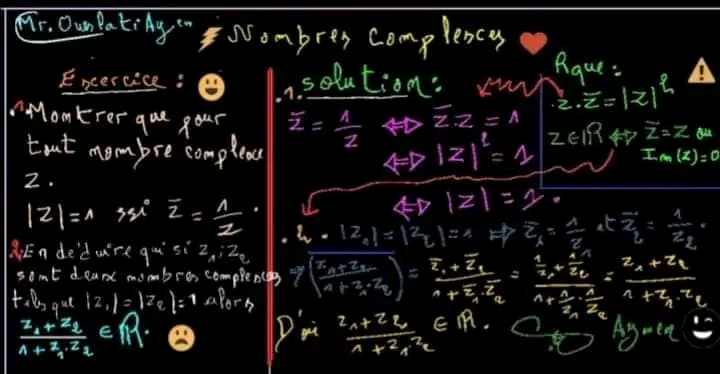 Mr. Oueslati Aymen
Nombres complexes
Exercice :
1. Montrer que pour
tout nombre complexe
z.
|z|=1 ssi z̅ = 1/z .
2. En déduire que si z₁ ; z₂
sont deux nombres complexes
tels que |z₁| = |z₂| = 1 alors
(z₁+z₂)/(1+z₁.z₂) ∈ ℝ.
.1. solution :
z̅ = 1/z ⇔ z̅.z = 1
⇔ |z|² = 1
⇔ |z| = 1.
Rque :
.z.z̅ = |z|²
z∈ℝ ⇔ z̅ = z ou
Im(z)=0
.2. |z₁| = |z₂| = 1 ⇒ z̅₁ = 1/z₁ et z̅₂ = 1/z₂.
⇒ \overline{((z₁+z₂)/(1+z₁.z₂))} = (z̅₁+z̅₂)/(1+z̅₁.z̅₂) = (1/z₁+1/z₂)/(1+1/z₁.1/z₂) = (z₁+z₂)/(1+z₁.z₂)
D'où (z₁+z₂)/(1+z₁.z₂) ∈ ℝ.
Aymen